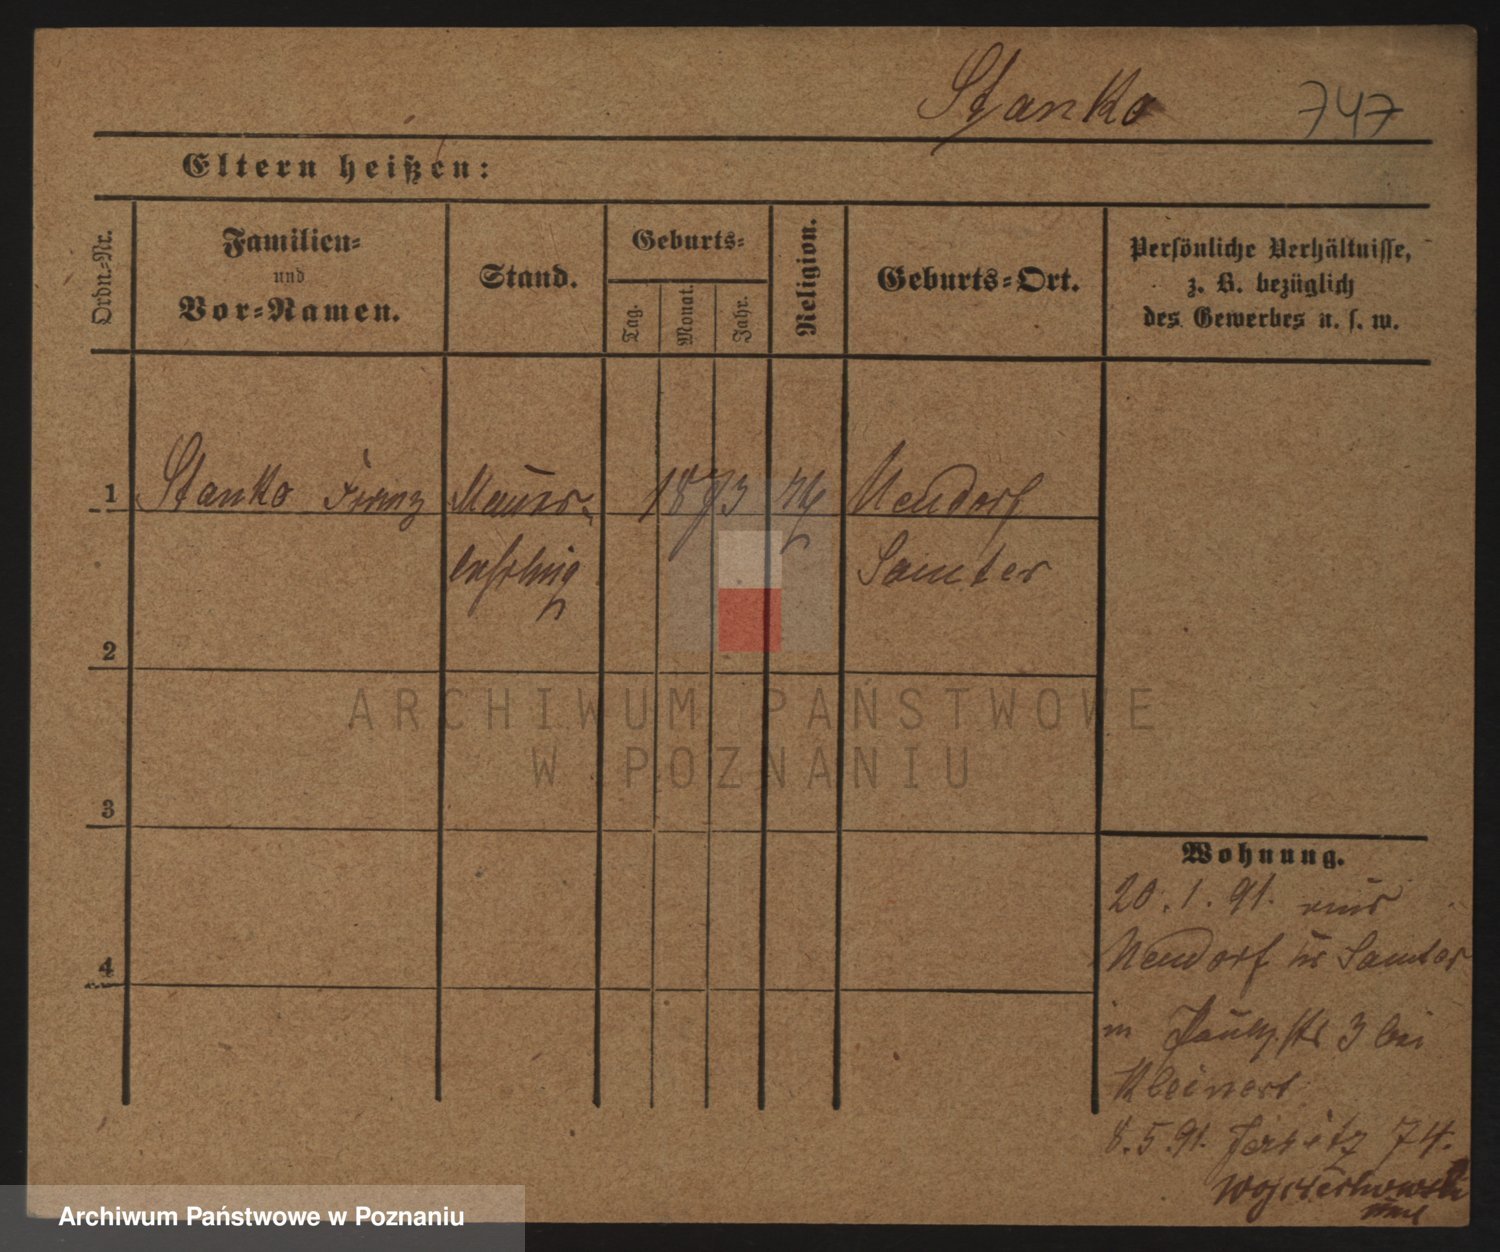 Stanko 747
Eltern heißen:
Ordn.-Nr.
Familien-
und
Vor-Namen.
Stand.
Geburts-
Tag.
Monat.
Jahr.
Religion.
Geburts-Ort.
Persönliche Verhältnisse,
z. B. bezüglich
des Gewerbes u. s. w.
1 Stanko Franz Maurer- 1873 Neudorf
lehrling Samter
2
3
4
Wohnung.
20.1.91. aus
Neudorf Samter
in 3 bei
Kleinert
8.5.91. Jersitz 74.
Wojciechowski
ARCHIWUM PAŃSTWOWE
W POZNANIU
Archiwum Państwowe w Poznaniu